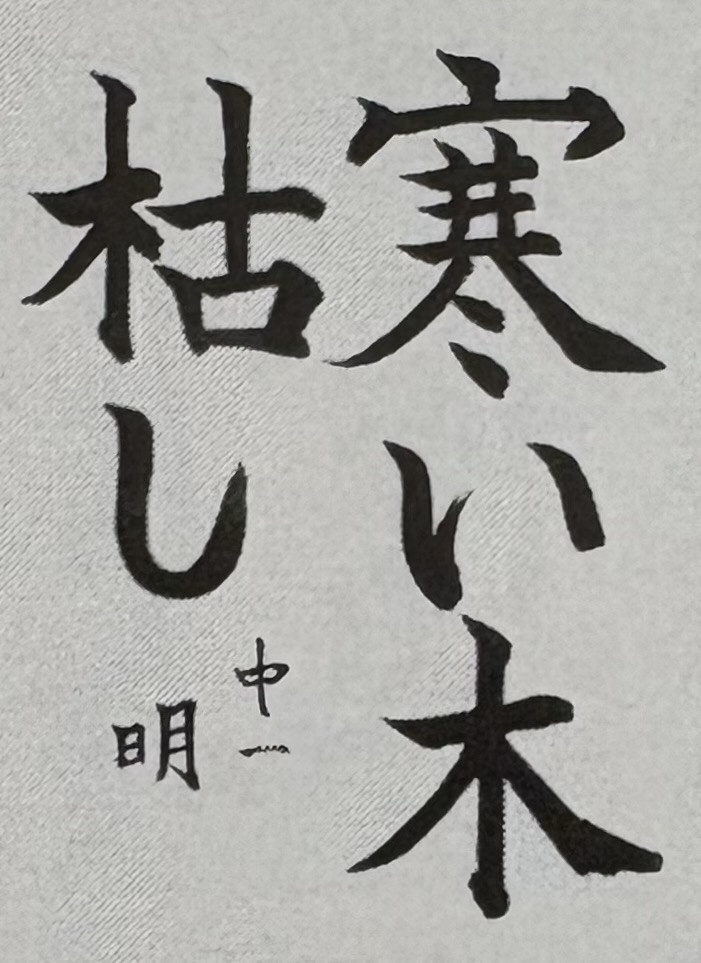 寒い木
枯し
中一
明